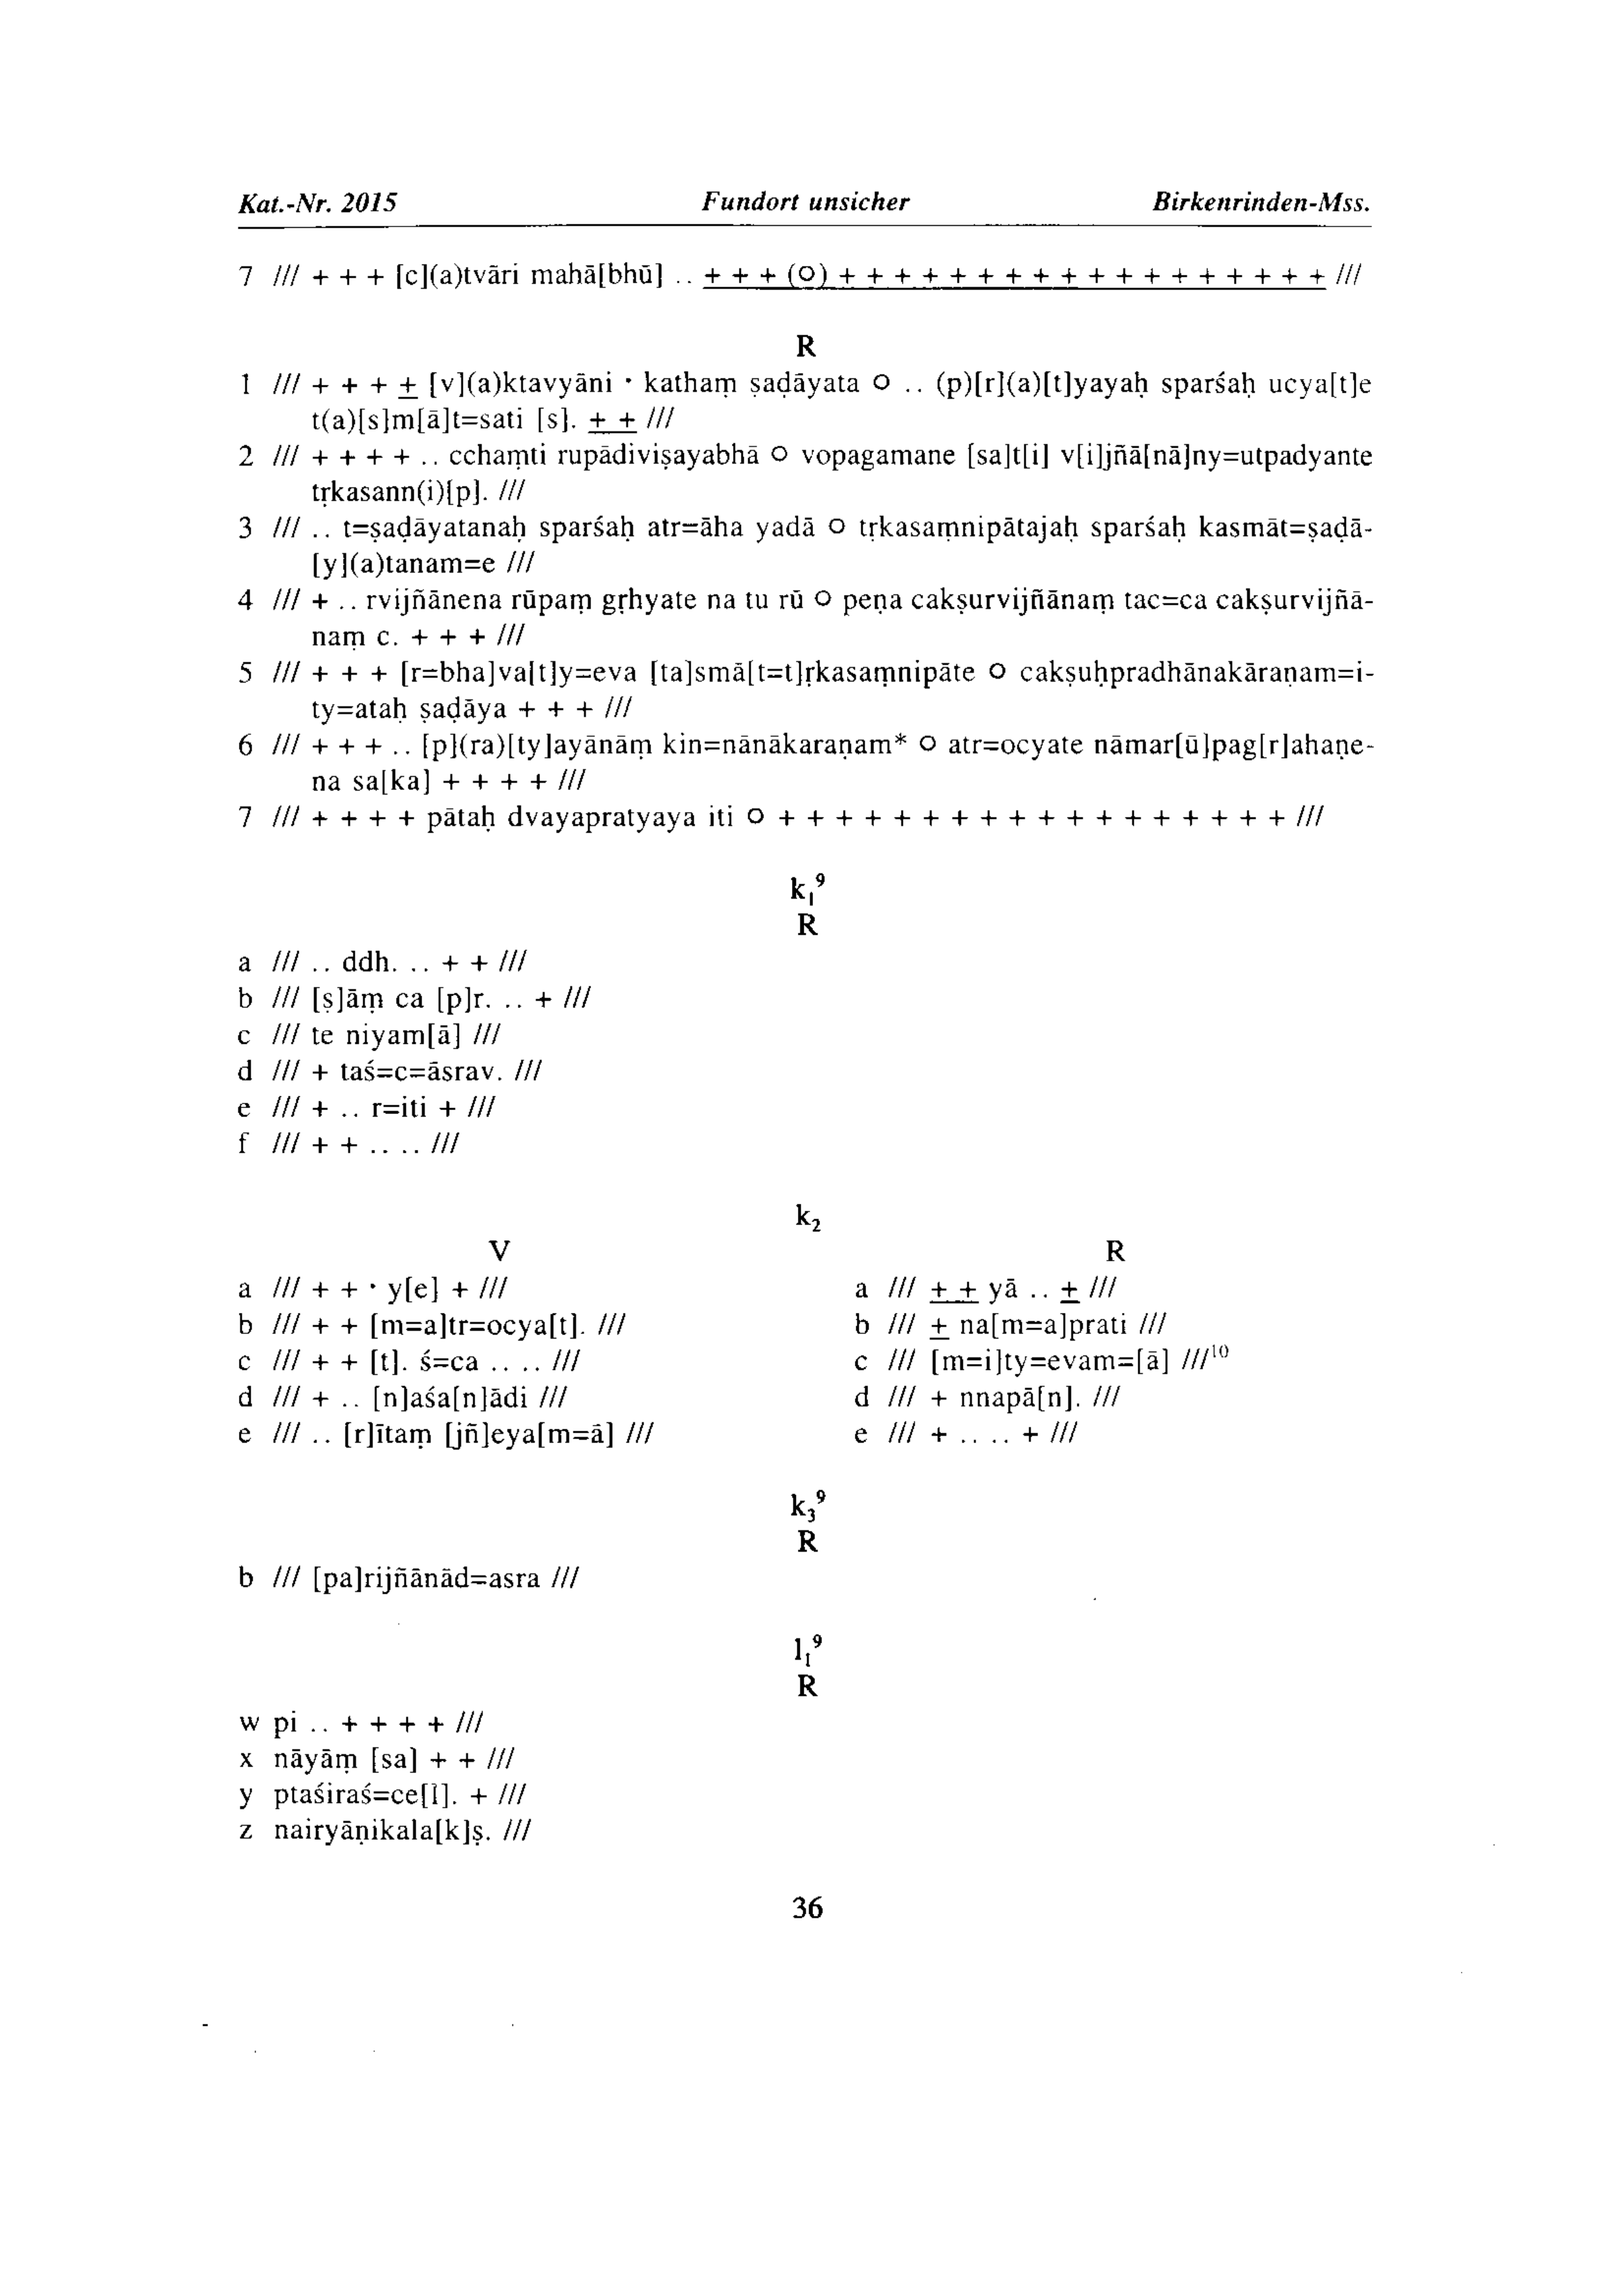 Kat.-Nr. 2015 Fundort unsicher Birkenrinden-Mss.
7 /// + + + [c](a)tvāri mahā[bhū] .. + + + (O) + + + + + + + + + + + + + + + + + + ///
R
1 /// + + + + [v](a)ktavyāni • kathaṃ ṣaḍāyata O .. (p)[r](a)[t]yayaḥ sparśaḥ ucya[t]e
t(a)[s]m[ā]t=sati [s]. + + ///
2 /// + + + + .. cchaṃti rupādiviṣayabhā O vopagamane [sa]t[i] v[i]jñā[nā]ny=utpadyante
tṛkasann(i)[p]. ///
3 /// .. t=ṣaḍāyatanaḥ sparśaḥ atr=āha yadā O tṛkasaṃnipātajaḥ sparśaḥ kasmāt=ṣaḍā-
[y](a)tanam=e ///
4 /// + .. rvijñānena rūpaṃ gṛhyate na tu rū O peṇa cakṣurvijñānaṃ tac=ca cakṣurvijñā-
naṃ c. + + + ///
5 /// + + + [r=bha]va[t]y=eva [ta]smā[t=t]ṛkasaṃnipāte O cakṣuḥpradhānakāraṇam=i-
ty=ataḥ ṣaḍāya + + + ///
6 /// + + + .. [p](ra)[ty]ayānāṃ kin=nānākaraṇam* O atr=ocyate nāmar[ū]pag[r]ahaṇe-
na sa[ka] + + + + ///
7 /// + + + + pātaḥ dvayapratyaya iti O + + + + + + + + + + + + + + + + + + ///
k₁⁹
R
a /// .. ddh. .. + + ///
b /// [ṣ]āṃ ca [p]r. .. + ///
c /// te niyam[ā] ///
d /// + taś=c=āsrav. ///
e /// + .. r=iti + ///
f /// + + .. .. ///
k₂
V R
a /// + + • y[e] + /// a /// + + yā .. + ///
b /// + + [m=a]tr=ocya[t]. /// b /// + na[m=a]prati ///
c /// + + [t]. ś=ca .. .. /// c /// [m=i]ty=evam=[ā] ///¹⁰
d /// + .. [n]aśa[n]ādi /// d /// + nnapā[n]. ///
e /// .. [r]ītaṃ [jñ]eya[m=ā] /// e /// + .. .. + ///
k₃⁹
R
b /// [pa]rijñānād=asra ///
l₁⁹
R
w pi .. + + + + ///
x nāyāṃ [sa] + + ///
y ptaśiraś=ce[l]. + ///
z nairyāṇikala[k]ṣ. ///
36